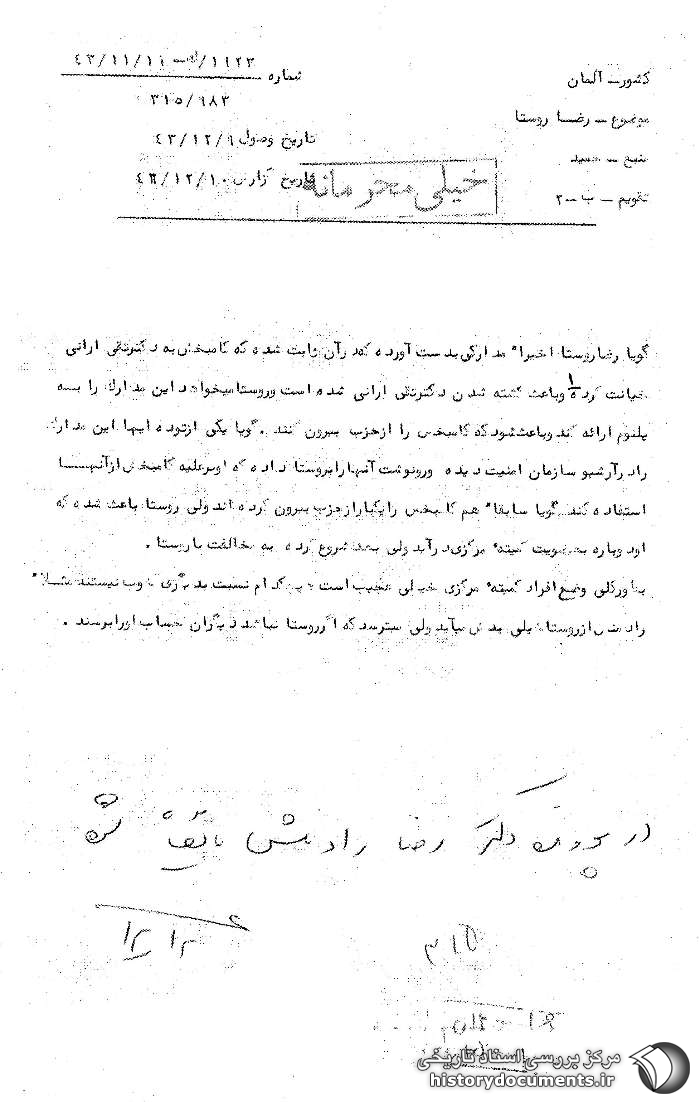 کشور ــ آلمان
موضوع ــ رضا روستا
منبع ــ حمید
تقویم ــ ب ــ ۲
شماره ۱۱۲۳/ ۴۳/۱۱/۱۱
۳۱۵/۹۸۳
تاریخ وصول ۴۳/۱۲/۹
تاریخ گزارش ۴۳/۱۲/۱۰
خیلی محرمانه
گویا رضا روستا اخیراً مدارکی بدست آورده که در آن ثابت شده که کامبخش به دکتر تقی ارانی
خیانت کرده ۱ و باعث کشته شدن دکتر تقی ارانی شده است و روستا میخواهد این مدارک را به
پلنوم ارائه کند و باعث شود که کامبخش را از حزب بیرون کنند . گویا یکی از توده ایها این مدارک
را در آرشیو سازمان امنیت دیده و رونوشت آنها را بروستا داده که او بر علیه کامبخش از آنها
استفاده کند گویا سابقاً هم کامبخش را یکبار از حزب بیرون کرده اند ولی روستا باعث شده که
او دوباره به عضویت کمیته مرکزی در آید ولی بعد شروع کرده به مخالفت با روستا .
بطور کلی وضع افراد کمیته مرکزی خیلی عجیب است هیچکدام نسبت بدیگری خوب نیستند مثلاً
رادمنش از روستا خیلی بدش میآید ولی میترسد که اگر روستا نباشد دیگران حساب او را برسند .
در پرونده دکتر رضا رادمنش بایگانی شود
۱۲/۱۲
۳۱۵
مرکز بررسی اسناد تاریخی
historydocuments.ir